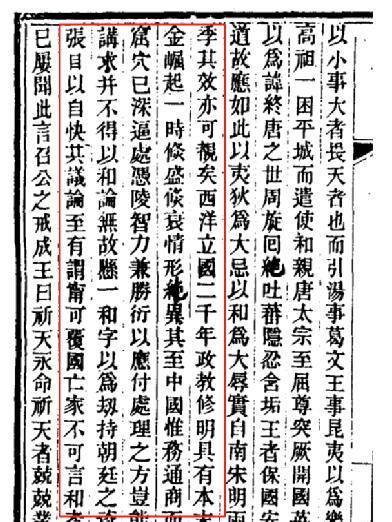 以小事大者畏天者也而引湯事葛文王事昆夷以爲樂
高祖一困平城而遣使和親唐太宗至屈尊突厥開國英
以爲諱終唐之世周旋回紇吐蕃隱忍含垢王者保國安
道故應如此以夷狄爲大忌以和爲大辱實自南宋明
季其效亦可覩矣西洋立國二千年政教修明具有本
金崛起一時倏盛倏衰情形絶異其至中國惟務通商而
窟穴已深逼處憑陵智力兼勝衍以應付處理之方豈能
講求并不得以和論無故懸一和字以爲刼持朝廷之
張目以自快其議論至有謂甯可覆國亡家不可言和
已屢聞此言召公之戒成王曰祈天永命祈天者兢兢業